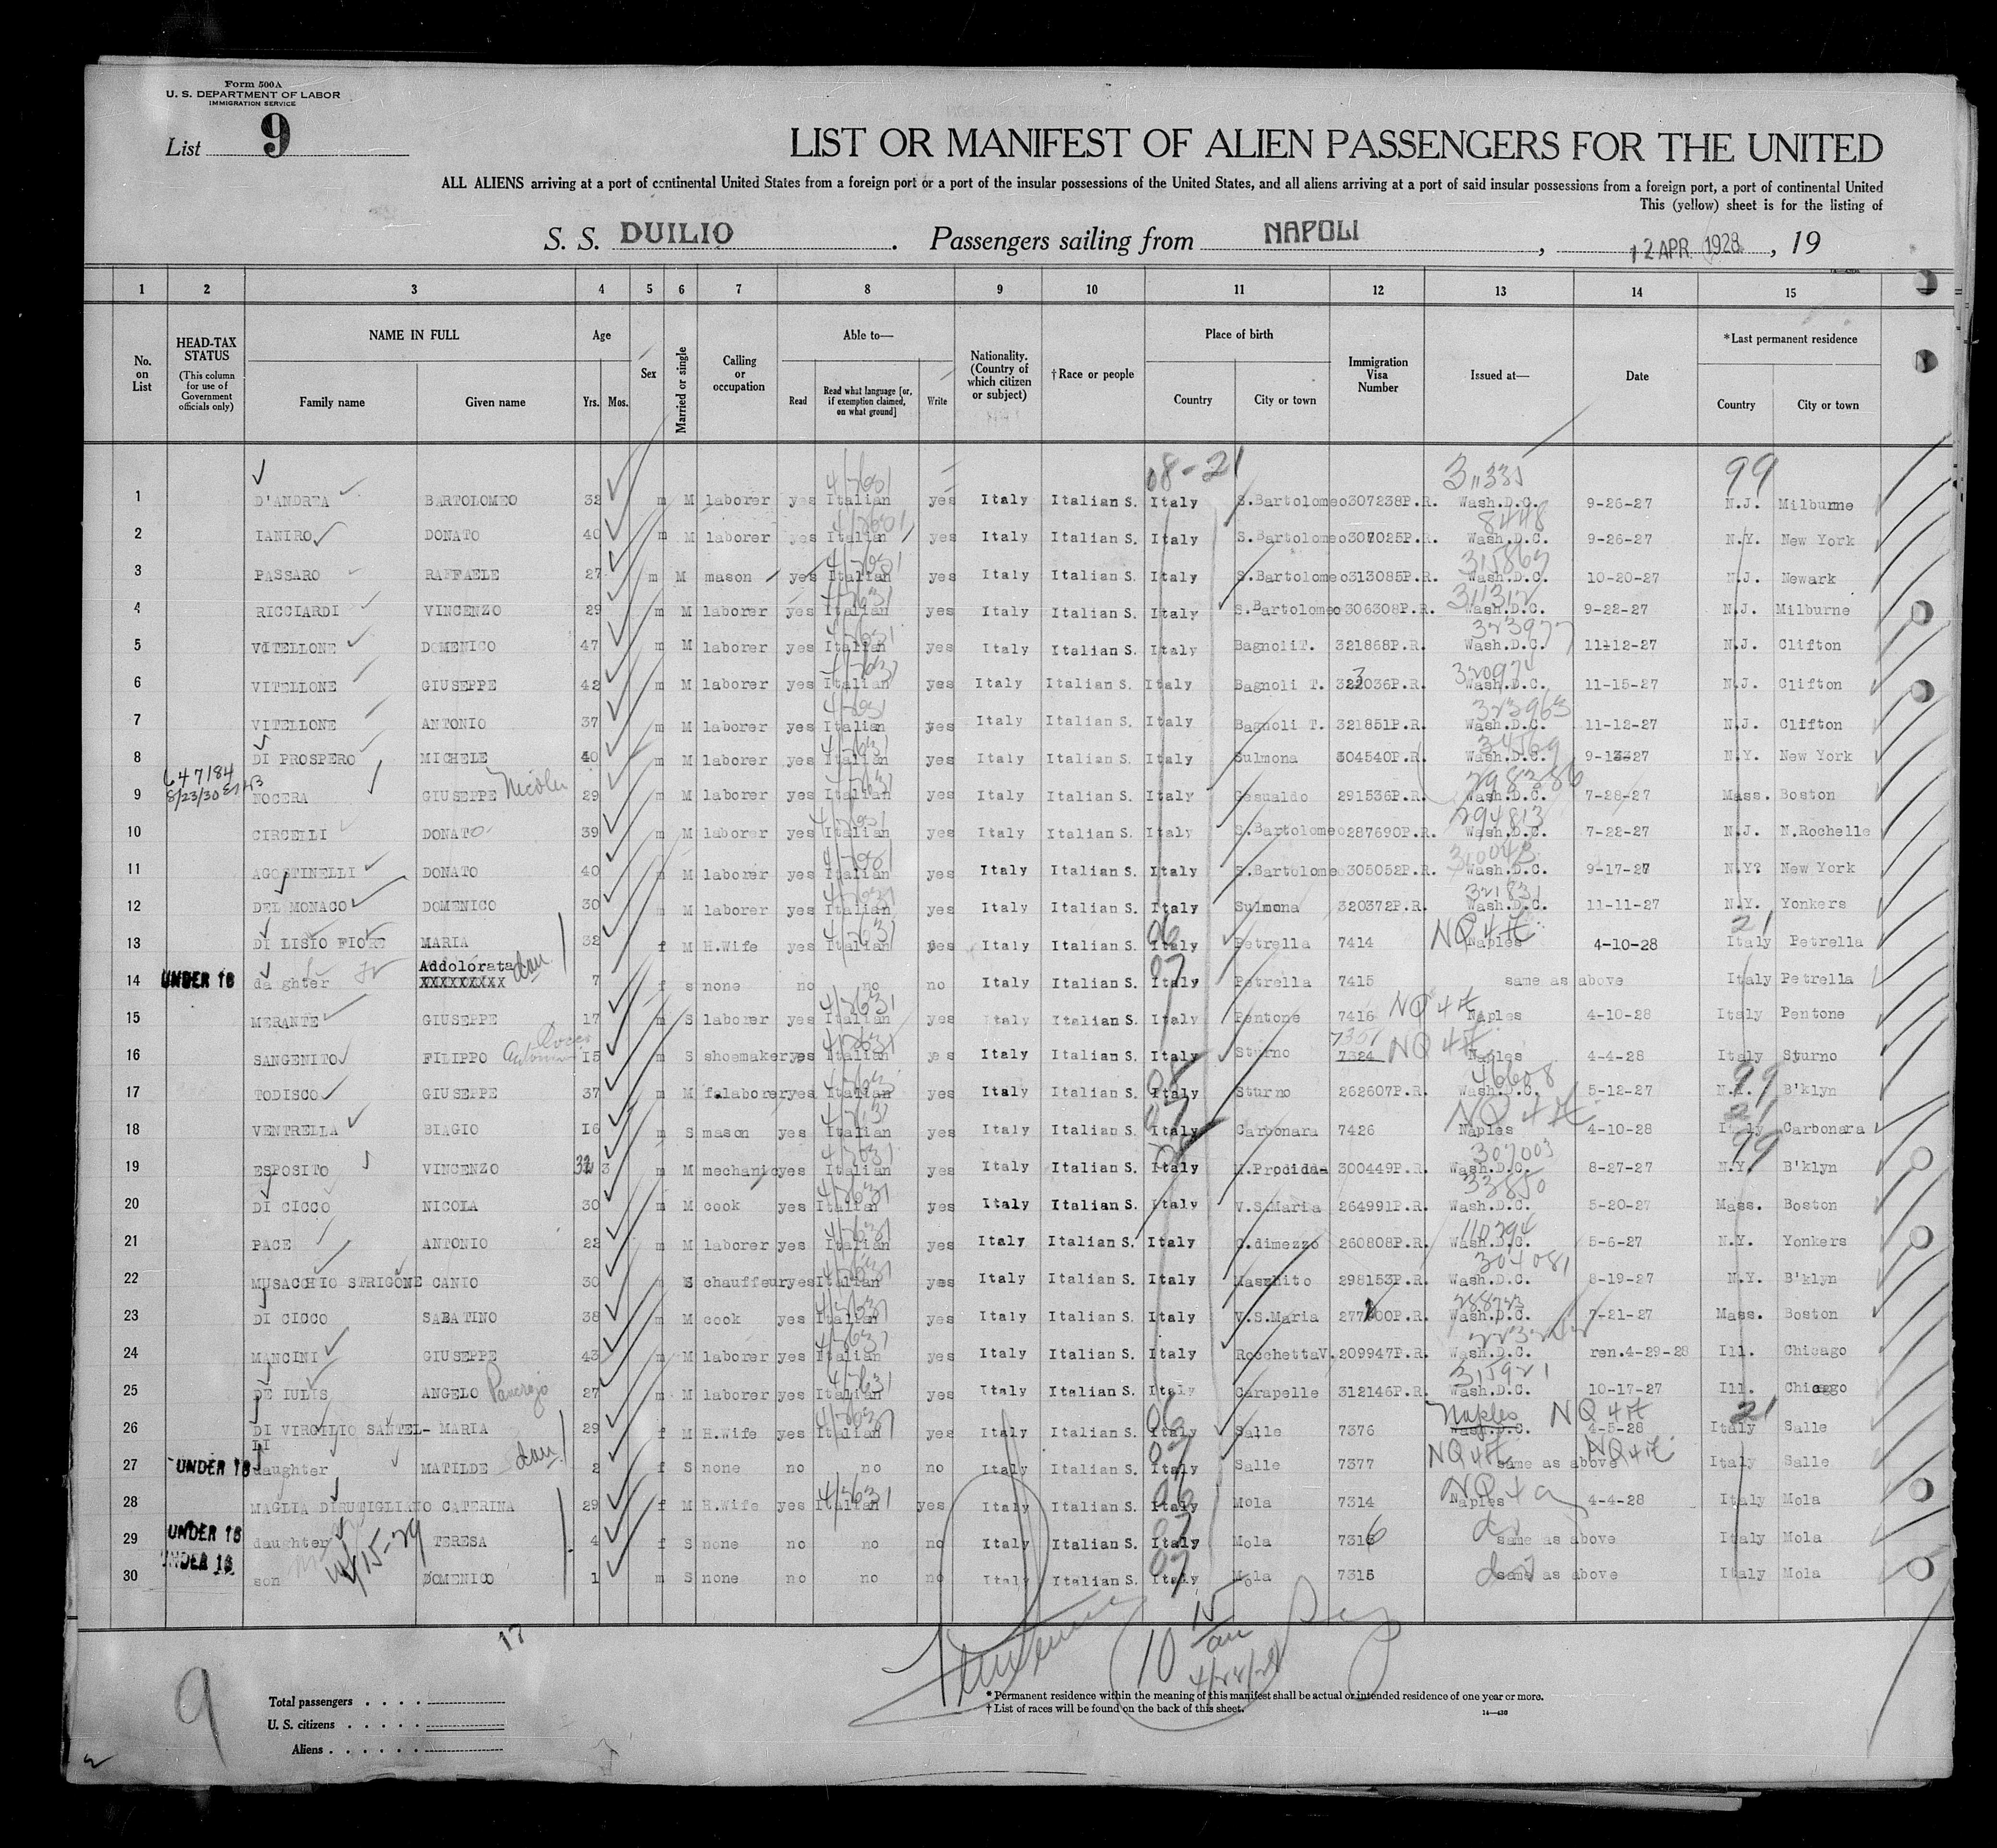 Form 500A
U. S. DEPARTMENT OF LABOR
IMMIGRATION SERVICE
List 9
LIST OR MANIFEST OF ALIEN PASSENGERS FOR THE UNITED
ALL ALIENS arriving at a port of continental United States from a foreign port or a port of the insular possessions of the United States, and all aliens arriving at a port of said insular possessions from a foreign port, a port of continental United
This (yellow) sheet is for the listing of
S. S. DUILIO . Passengers sailing from NAPOLI , 12 APR 1928 , 19
1 2 3 4 5 6 7 8 9 10 11 12 13 14 15
No. on List
HEAD-TAX STATUS
(This column for use of Government officials only)
NAME IN FULL
Family name Given name
Age
Yrs. Mos.
Sex
Married or single
Calling or occupation
Able to—
Read Read what language [or, if exemption claimed, on what ground] Write
Nationality. (Country of which citizen or subject)
†Race or people
Place of birth
Country City or town
Immigration Visa Number
Issued at—
Date
*Last permanent residence
Country City or town
08-21 99
1 D'ANDREA BARTOLOMEO 32 m M laborer yes Italian yes Italy Italian S. Italy S.Bartolomeo 307238P.R. Wash.D.C. 9-26-27 N.J. Milburne
2 IANIRO DONATO 40 m M laborer yes Italian yes Italy Italian S. Italy S.Bartolomeo 8448 Wash.D.C. 9-26-27 N.Y. New York
3 PASSARO RAFFAELE 27 m M mason yes Italian yes Italy Italian S. Italy S.Bartolomeo 313085P.R. Wash.D.C. 10-20-27 N.J. Newark
4 RICCIARDI VINCENZO 29 m M laborer yes Italian yes Italy Italian S. Italy S.Bartolomeo 306308P.R. Wash.D.C. 9-22-27 N.J. Milburne
5 VITELLONE DOMENICO 47 m M laborer yes Italian yes Italy Italian S. Italy BagnoliT. 321868P.R. 323977 Wash.D.C. 11-12-27 N.J. Clifton
6 VITELLONE GIUSEPPE 42 m M laborer yes Italian yes Italy Italian S. Italy Bagnoli T. Wash.D.C. 11-15-27 N.J. Clifton
7 VITELLONE ANTONIO 37 m M laborer yes Italian yes Italy Italian S. Italy Bagnoli T. 321851P.R. 323963 Wash.D.C. 11-12-27 N.J. Clifton
8 DI PROSPERO MICHELE 40 m M laborer yes Italian yes Italy Italian S. Italy Sulmona 304540P.R. Wash.D.C. N.Y. New York
647184
8/23/30
9 NOCERA GIUSEPPE 29 m M laborer yes Italian yes Italy Italian S. Italy Gesualdo 291536P.R. 298386 Wash.D.C. 7-28-27 Mass. Boston
10 CIRCELLI DONATO 39 m M laborer yes Italian yes Italy Italian S. Italy S.Bartolomeo 287690P.R. 294813 Wash.D.C. 7-22-27 N.J. N.Rochelle
11 AGOSTINELLI DONATO 40 m M laborer yes Italian yes Italy Italian S. Italy S.Bartolomeo 305052P.R. Wash.D.C. 9-17-27 N.Y? New York
12 DEL MONACO DOMENICO 30 m M laborer yes Italian yes Italy Italian S. Italy Sulmona 320372P.R. Wash.D.C. 11-11-27 N.Y. Yonkers
13 DI LISIO FIORE MARIA 32 f M H.Wife yes Italian yes Italy Italian S. Italy Petrella 7414 Naples 4-10-28 Italy Petrella
14 UNDER 16 da ghter Addolorata XXXXXXXXX dau 7 f s none no no no Italy Italian S. Italy Petrella 7415 same as above Italy Petrella
15 MERANTE GIUSEPPE 17 m S laborer yes Italian yes Italy Italian S. Italy Pentone 7416 Naples 4-10-28 Italy Pentone
16 SANGENITO FILIPPO 15 m S shoemaker yes Italian yes Italy Italian S. Italy Sturno 7324 Naples 4-4-28 Italy Sturno
17 TODISCO GIUSEPPE 37 m M falaborer yes Italian yes Italy Italian S. Italy Sturno 262607P.R. 46608 Wash.D.C. 5-12-27 N.Y. B'klyn
18 VENTRELLA BIAGIO 16 m S mason yes Italian yes Italy Italian S. Italy Carbonara 7426 Naples 4-10-28 Italy Carbonara
19 ESPOSITO VINCENZO m M mechanic yes Italian yes Italy Italian S. Italy M.Procida 300449P.R. 307003 Wash.D.C. 8-27-27 N.Y. B'klyn
20 DI CICCO NICOLA 30 m M cook yes Italian yes Italy Italian S. Italy V.S.Maria 264991P.R. 33850 Wash.D.C. 5-20-27 Mass. Boston
21 PACE ANTONIO 22 m M laborer yes Italian yes Italy Italian S. Italy C.dimezzo 260808P.R. Wash.D.C. 5-6-27 N.Y. Yonkers
22 MUSACCHIO STRIGONE CANIO 30 m S chauffeur yes Italian yes Italy Italian S. Italy Maschito 298153P.R. 304081 Wash.D.C. 8-19-27 N.Y. B'klyn
23 DI CICCO SABATINO 38 m M cook yes Italian yes Italy Italian S. Italy V.S.Maria Wash.D.C. 7-21-27 Mass. Boston
24 MANCINI GIUSEPPE 43 m M laborer yes Italian yes Italy Italian S. Italy RocchettaV. 209947P.R. Wash.D.C. ren.4-29-28 Ill. Chicago
25 DE IULIS ANGELO 27 m M laborer yes Italian yes Italy Italian S. Italy Carapelle 312146P.R. 315921 Wash.D.C. 10-17-27 Ill. Chicago
26 DI VIRGILIO SANTEL-LI MARIA 29 f M H.Wife yes Italian yes Italy Italian S. Italy Salle 7376 Naples Wash.D.C. 4-5-28 Italy Salle
27 UNDER 16 daughter MATILDE dau 2 f S none no no no Italy Italian S. Italy Salle 7377 same as above Italy Salle
28 MAGLIA DIRUTIGLIANO CATERINA 29 f M H.Wife yes Italian yes Italy Italian S. Italy Mola 7314 Naples 4-4-28 Italy Mola
29 UNDER 16 daughter TERESA 4 f S none no no no Italy Italian S. Italy Mola 7316 same as above Italy Mola
30 UNDER 16 son DOMENICO 1 m S none no no no Italy Italian S. Italy Mola 7315 same as above Italy Mola
17
9
Total passengers
U. S. citizens
Aliens
* Permanent residence within the meaning of this manifest shall be actual or intended residence of one year or more.
† List of races will be found on the back of this sheet.
14—430